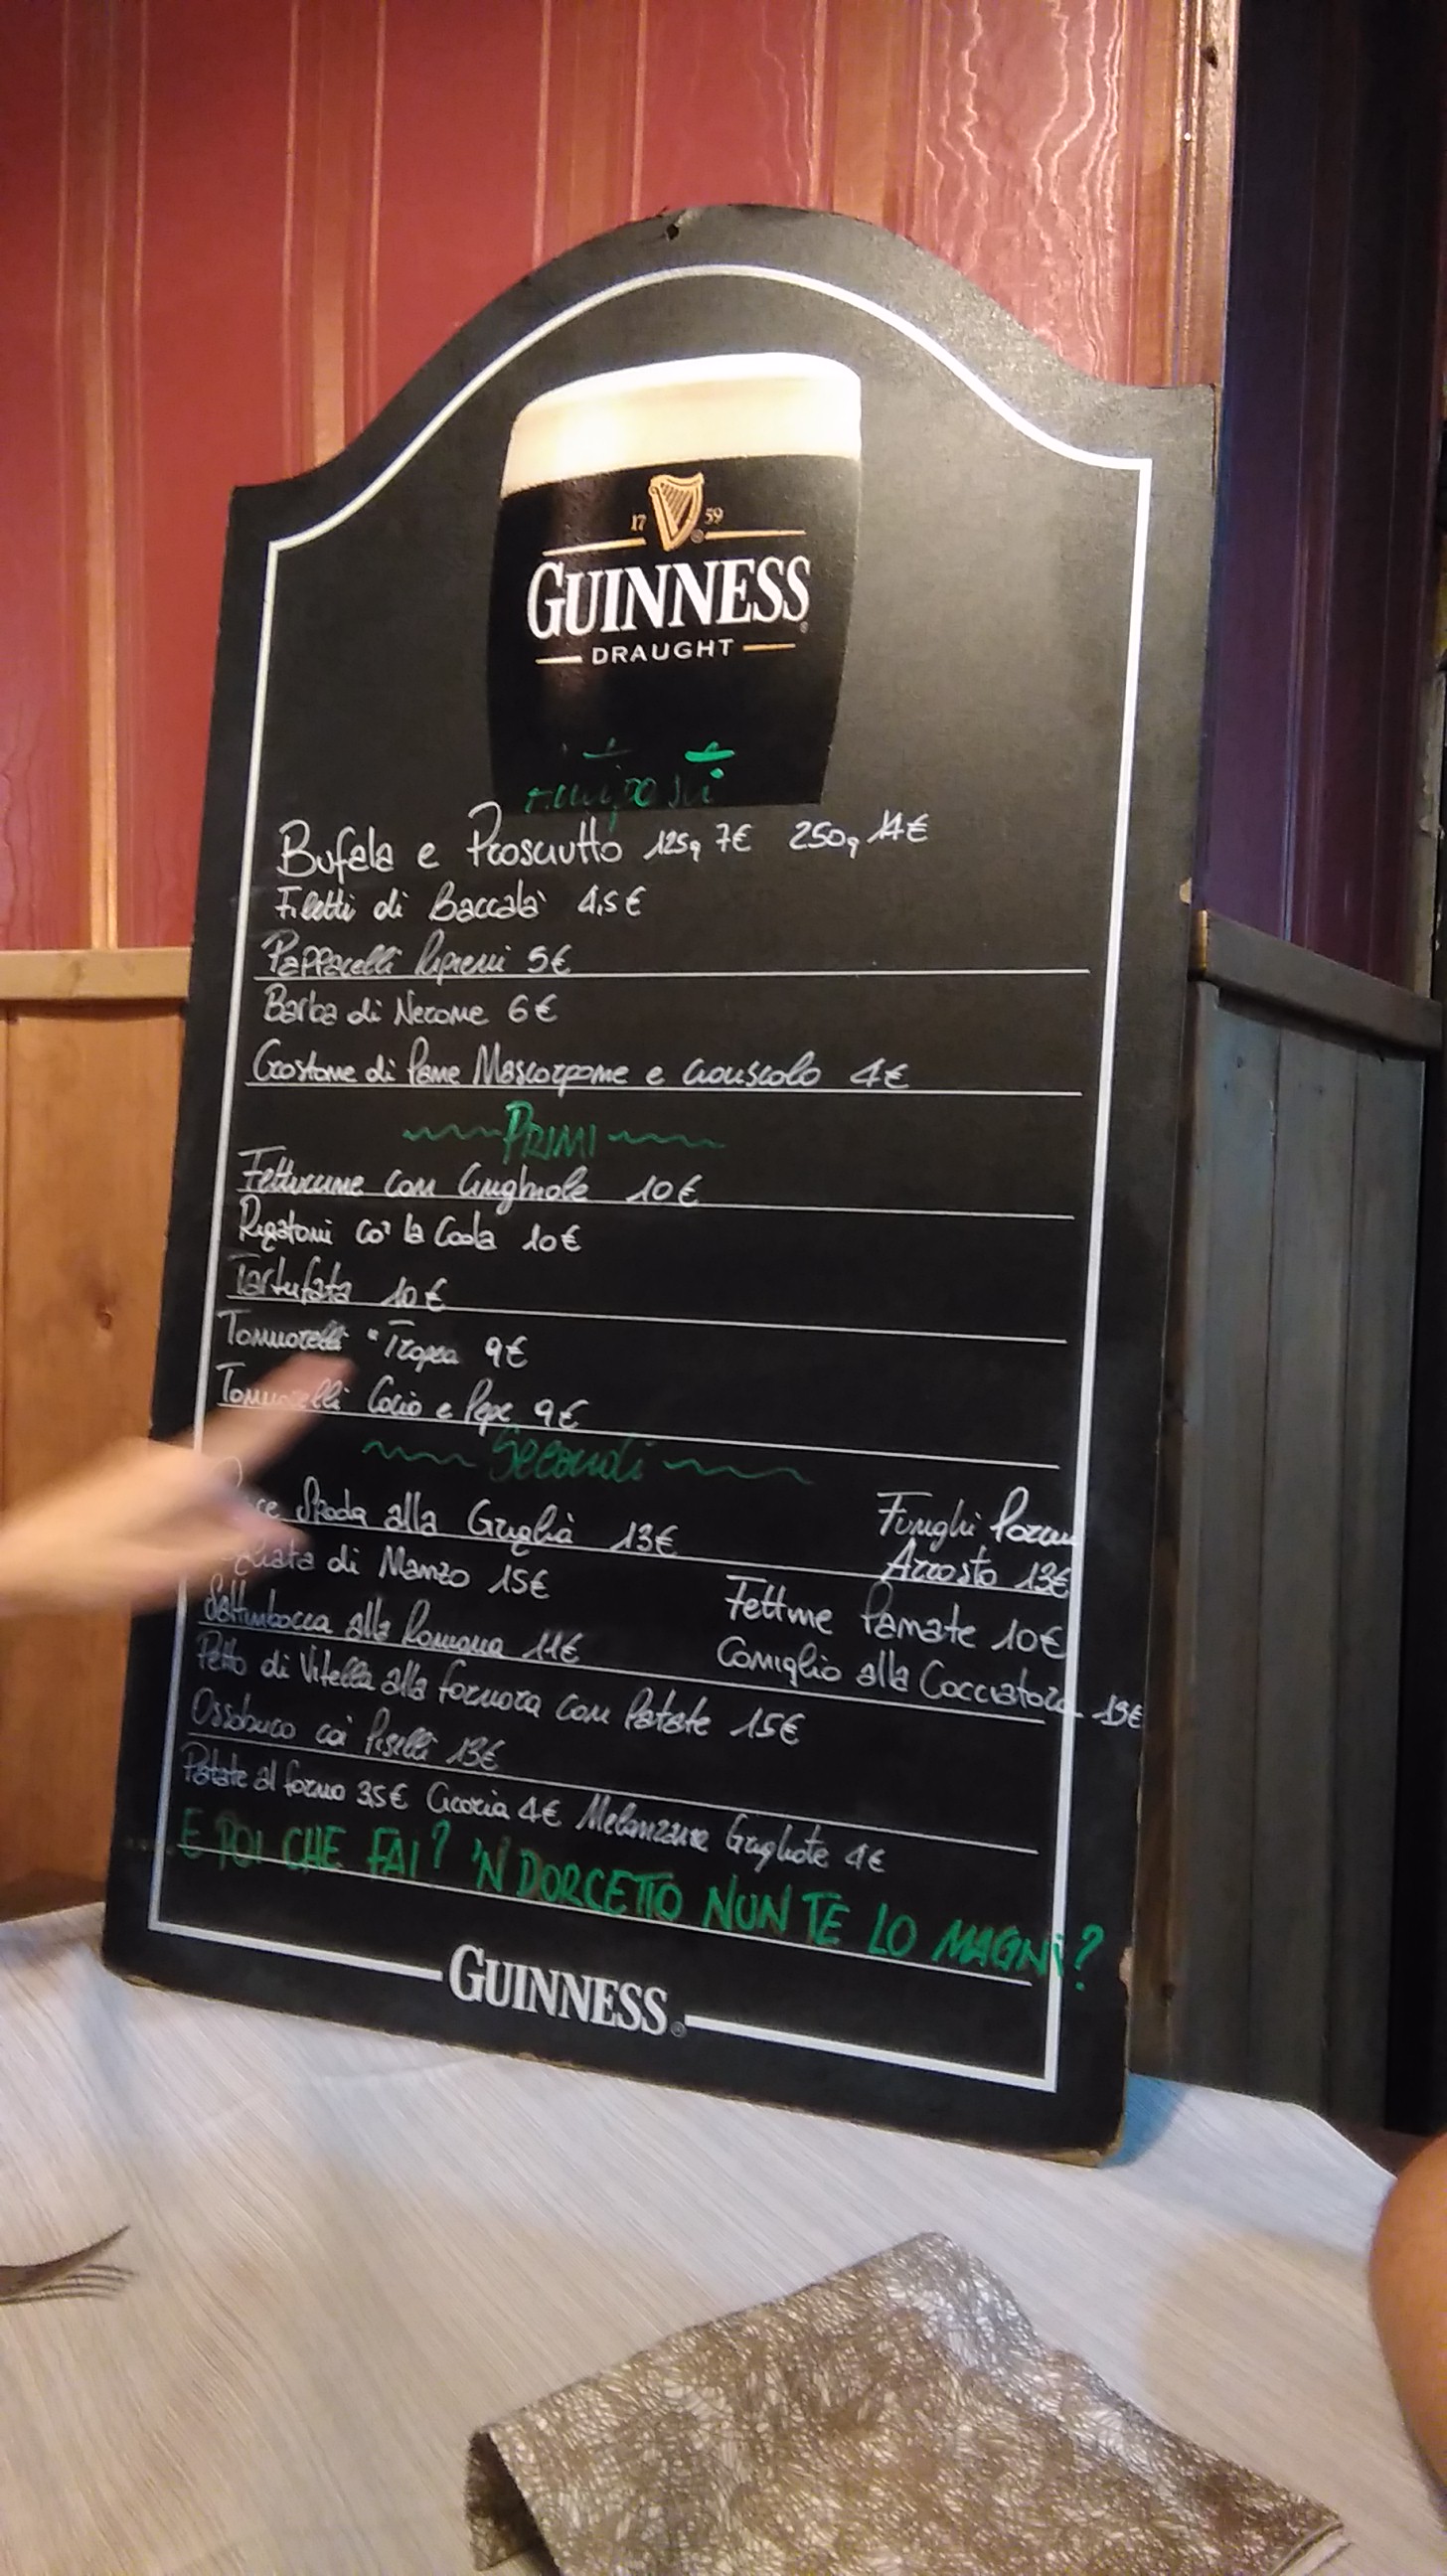 17 59
GUINNESS
DRAUGHT
Antipasti
Bufala e Prosciutto 125g 7€ 250g 14€
Filetti di Baccalà 4,5€
Pappacelli Ripieni 5€
Barba di Nerone 6€
Crostone di Pane Mascarpone e Ciauscolo 4€
PRIMI
Fettuccine con Cinghiale 10€
Rigatoni co' la Coda 10€
Tartufata 10€
Tonnarelli "Tropea 9€
Tonnarelli Cacio e Pepe 9€
Secondi
Spada alla Griglià 13€
Funghi Porcini
Arrosto 13€
di Manzo 15€
Fettine Panate 10€
Saltimbocca alla Romana 11€
Coniglio alla Cacciatora 13€
Petto di Vitella alla fornara con Patate 15€
Ossobuco coi Piselli 13€
Patate al forno 3,5€ Cicoria 4€ Melanzane Grigliate 4€
E POI CHE FAI? 'N DORCETTO NUN TE LO MAGNi?
GUINNESS